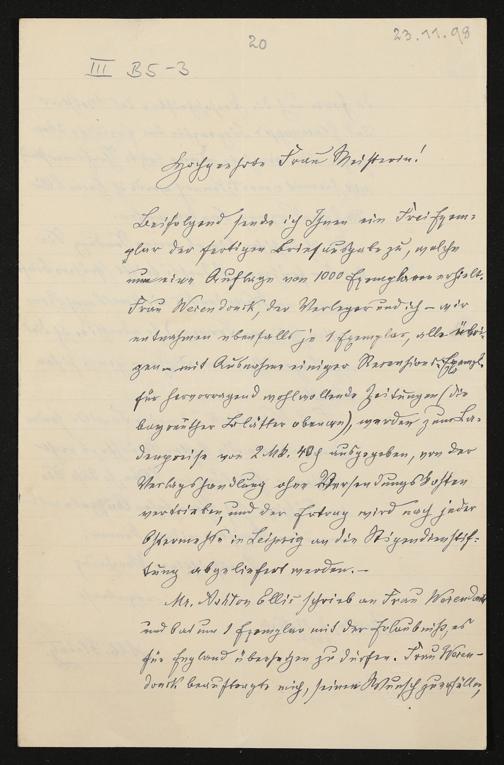 20
23.11.98
III B5-3
Hochgeehrte Frau Meisterin!
Beifolgend sende ich Ihnen ein Freiexem-
plar der fertigen Briefausgabe zu, welche
nun eine Auflage von 1000 Exemplaren erhielt.
Frau Wesendonck, der Verleger und ich – wir
entnahmen ebenfalls je 1 Exemplar, alle übri-
gen – mit Ausnahme einiger Recensions-Exempl.
für hervorragend wohlwollende Zeitungen (die
bayreuther Blätter obenan), werden zum La-
denpreise von 2 Mk. 40 ₰ ausgegeben, von der
Verlagshandlung ohne Versendungskosten
vertrieben, und der Ertrag wird nach jeder
Ostermesse in Leipzig an die Stipendienstif-
tung abgeliefert werden. –
Mr. Ashton Ellis schrieb an Frau Wesendonck
und bat um 1 Exemplar mit der Erlaubniß, es
für England übersetzen zu dürfen. Frau Wesen-
donck beauftragte mich, seinen Wunsch zu erfüllen,